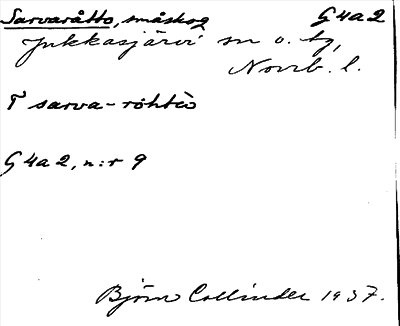 Sarvaråtto, småskog G4a2
Jukkasjärvi sn o. tg,
Norrb. l.
T sarva-röhtò
G4a2, n:r 9
Björn Collinder 1937.